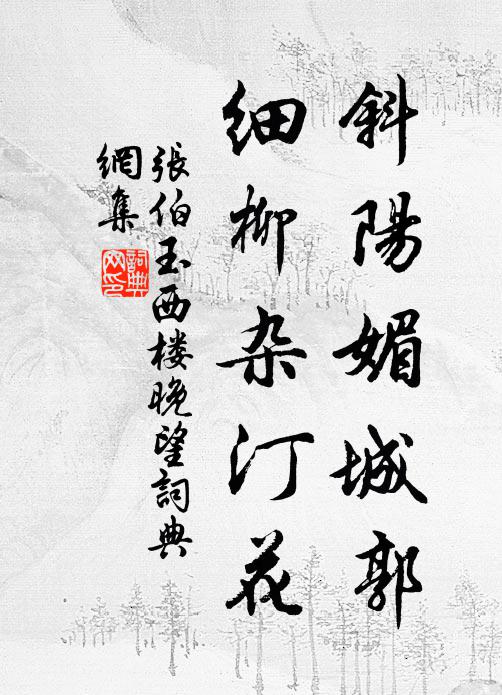 斜陽媚城郭
細柳杂汀花
張伯玉西楼晚望詞典
網集
詞典
网印